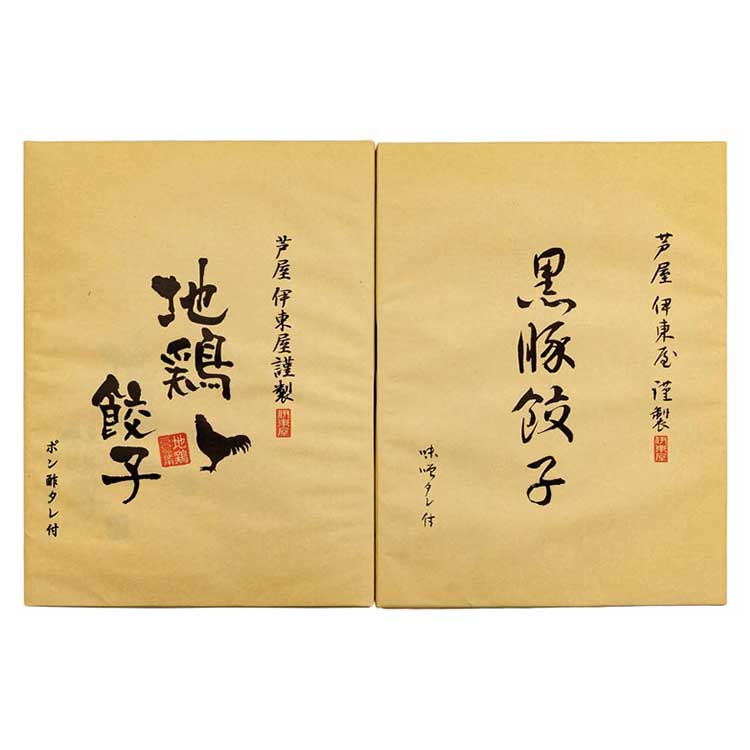 芦屋 伊東屋 謹製
伊東屋
地鶏
餃子
地鶏
ポン酢タレ付
芦屋 伊東屋 謹製
伊東屋
黒豚餃子
味噌タレ付